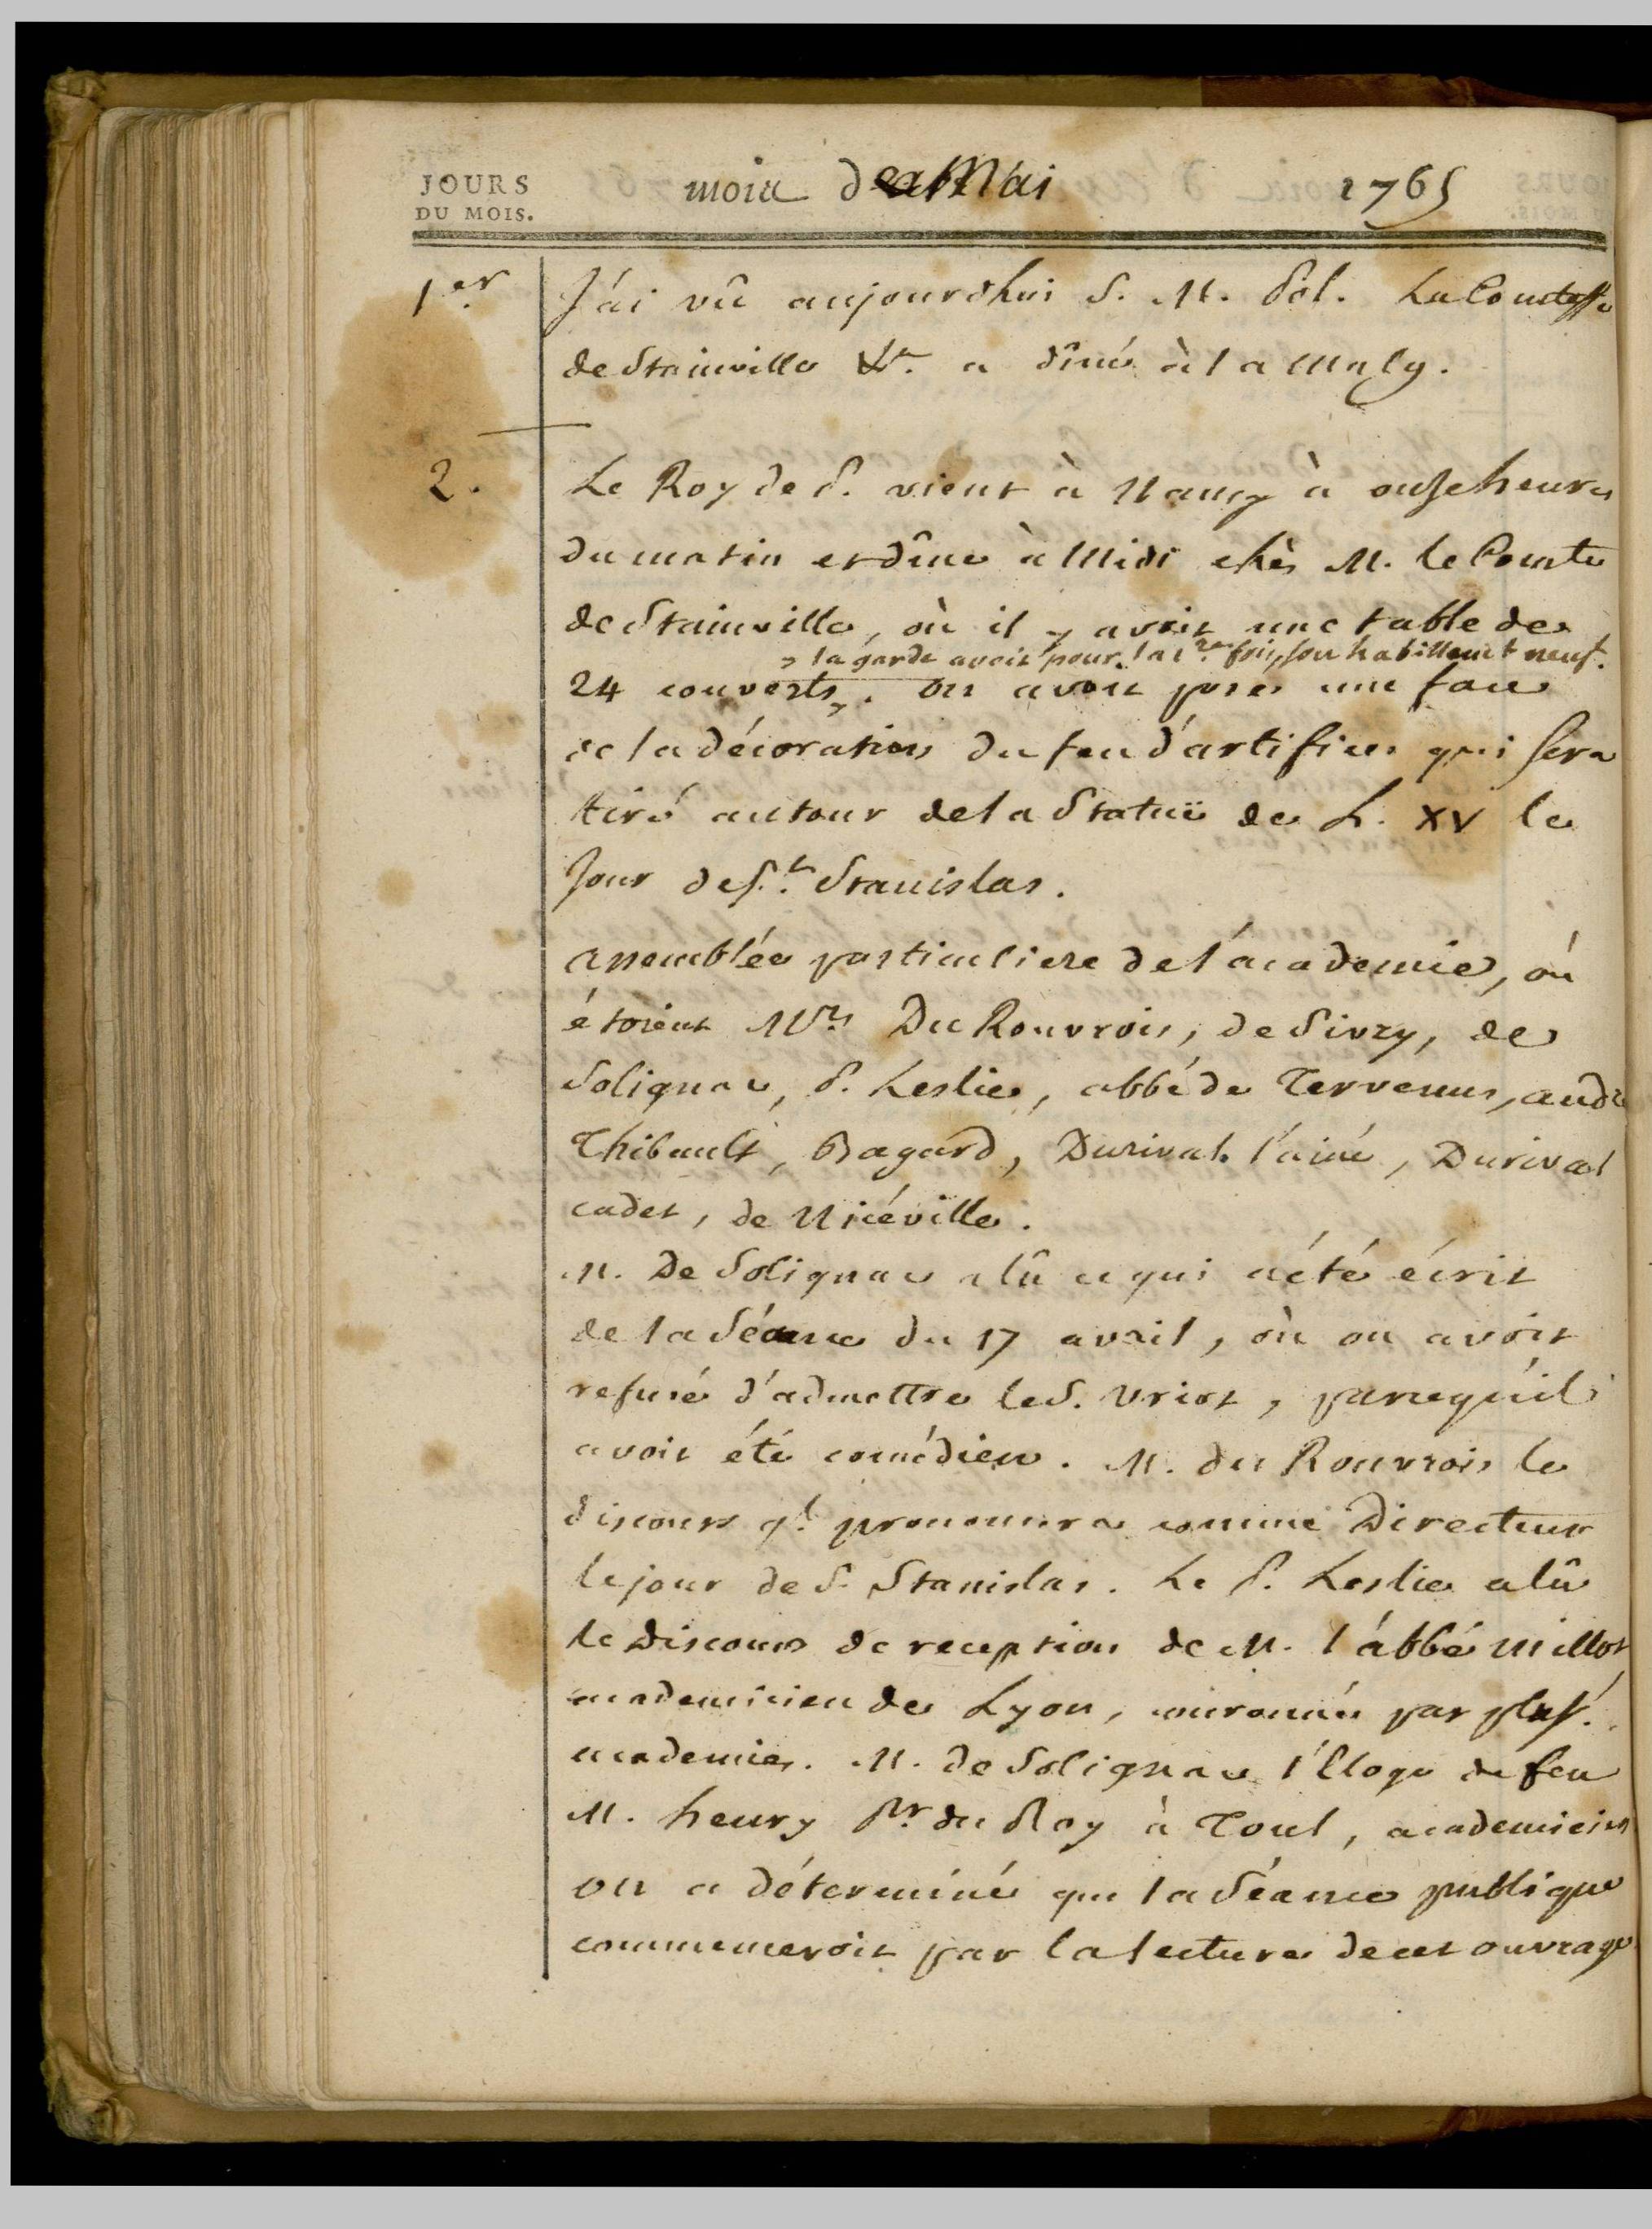 JOURS
DU MOIS.
mois de Mai 1765
1er J'ai vû aujourdhui S. M. Pol. La Comtesse
de Stainville &c. a dîné à la Malg.
2. Le Roy de P. vient à Nancy à onze heures
du matin et dîne à Midi chès M. le Comte
de Stainville, où il y avoit une table de
, la garde avoit pour la 1re fois, son habillemt neuf.
24 couverts. on avoit posé une face
de la décoration du feu d'artifice qui sera
tiré autour de la Statuë de L. XV le
Jour de St. Stanislas.
assemblée particuliere de l'academie, où
étoient Mrs. Du Rouvrois, de Sivry, de
Solignac, P. Leslie, abbé de Tervenus, andré
Thibault, Bagard, Durival l'ainé, Durival
cadet, de Nicéville.
M. De Solignac a lû ce qui a été écrit
de la Séance du 17 avril, où on avoit
refusé d'admettre le S. Uriot, parcequ'il
avoit été comédien. M. du Rouvrois le
discours ql. prononcera comme Directeur
le jour de S. Stanislas. Le P. Leslie a lû
le Discours de reception de M. l'abbé Millot
academicien de Lyon, couronné par plus.
academies. M. de Solignac l'Eloge de feu
M. henry Pr. du Roy à Toul, academicien
on a déterminé que la Séance publique
commenceroit par la lecture de cet ouvrage